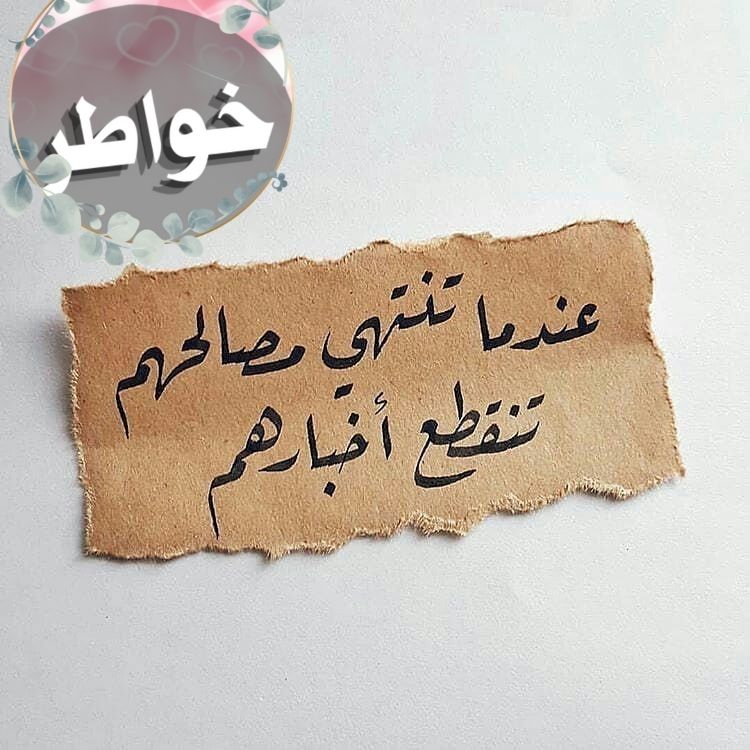 خواطر
عندما تنتهي مصالحهم
تنقطع أخبارهم